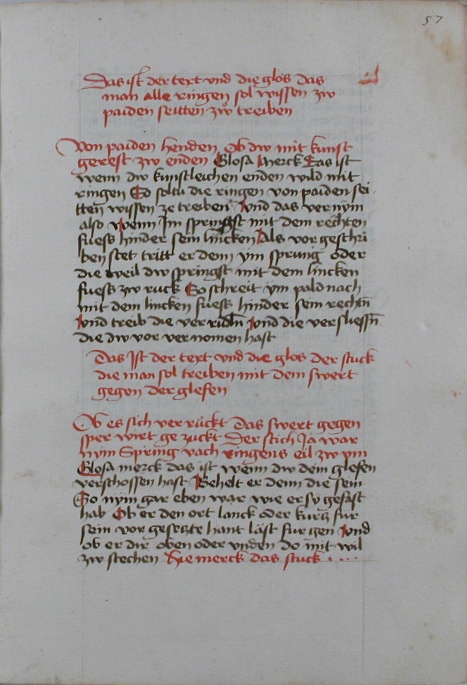 57
Das ist der text vnd die glos das
man alle ringen sol wissen zw
paiden seitten zw treiben
Von paiden henden Ob dw mit kunst
gerest zw enden Glosa Merck Das ist
wenn dw kunstleichen enden wild mit
ringen So soltu die ringen von paiden sei
tten wissen ze treiben Vnd das vernym
also Wenn Im springst mit dem rechten
fuess hinder sein lincken Als vor geschri
ben stet tritt er dem ym sprung oder
die weil dw springst mit dem lincken
fuess zw ruck So schreit ym pald nach
mit dem lincken fuess hinder sein rechtn
Vnd treib die ver Vnd die versliessn
die dw vor vernomen hast
Das Ist der text vnd die glos der stuck
die man sol treiben mit dem swert
gegen der glefen
Ob es sich verrückt Das swert gegen
sper wirt gezuckt Der stich Ja war
nym Spring vach ringens eil zw ym
Glosa merck das ist wenn dw dein glefen
verschossen hast Behelt er denn die sein
So nym gar eben war wie er sy gefast
hab Ob er den ort lanck oder kurtz fur
sein vor gesetzte hant läst fur gen Vnd
ob er dir oben oder vnden do mit wil
zw stechen merck das stuck